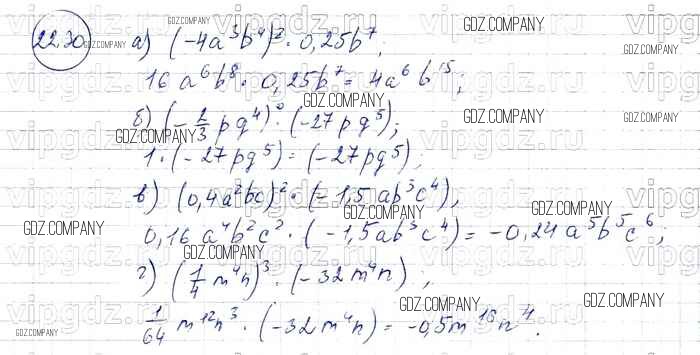 22.30 а) (-4a³b⁴)² · 0,25b⁷;
16a⁶b⁸ · 0,25b⁷ = 4a⁶b¹⁵;
б) (-2/3 pq⁴)⁰ · (-27pq⁵);
1 · (-27pq⁵) = (-27pq⁵);
в) (0,4a²bc)² · (-1,5ab³c⁴),
0,16a⁴b²c² · (-1,5ab³c⁴) = -0,24a⁵b⁵c⁶;
г) (1/4 m⁴n)³ · (-32m⁴n);
1/64 m¹²n³ · (-32m⁴n) = -0,5m¹⁶n⁴.
GDZ.COMPANY
vipgdz.ru